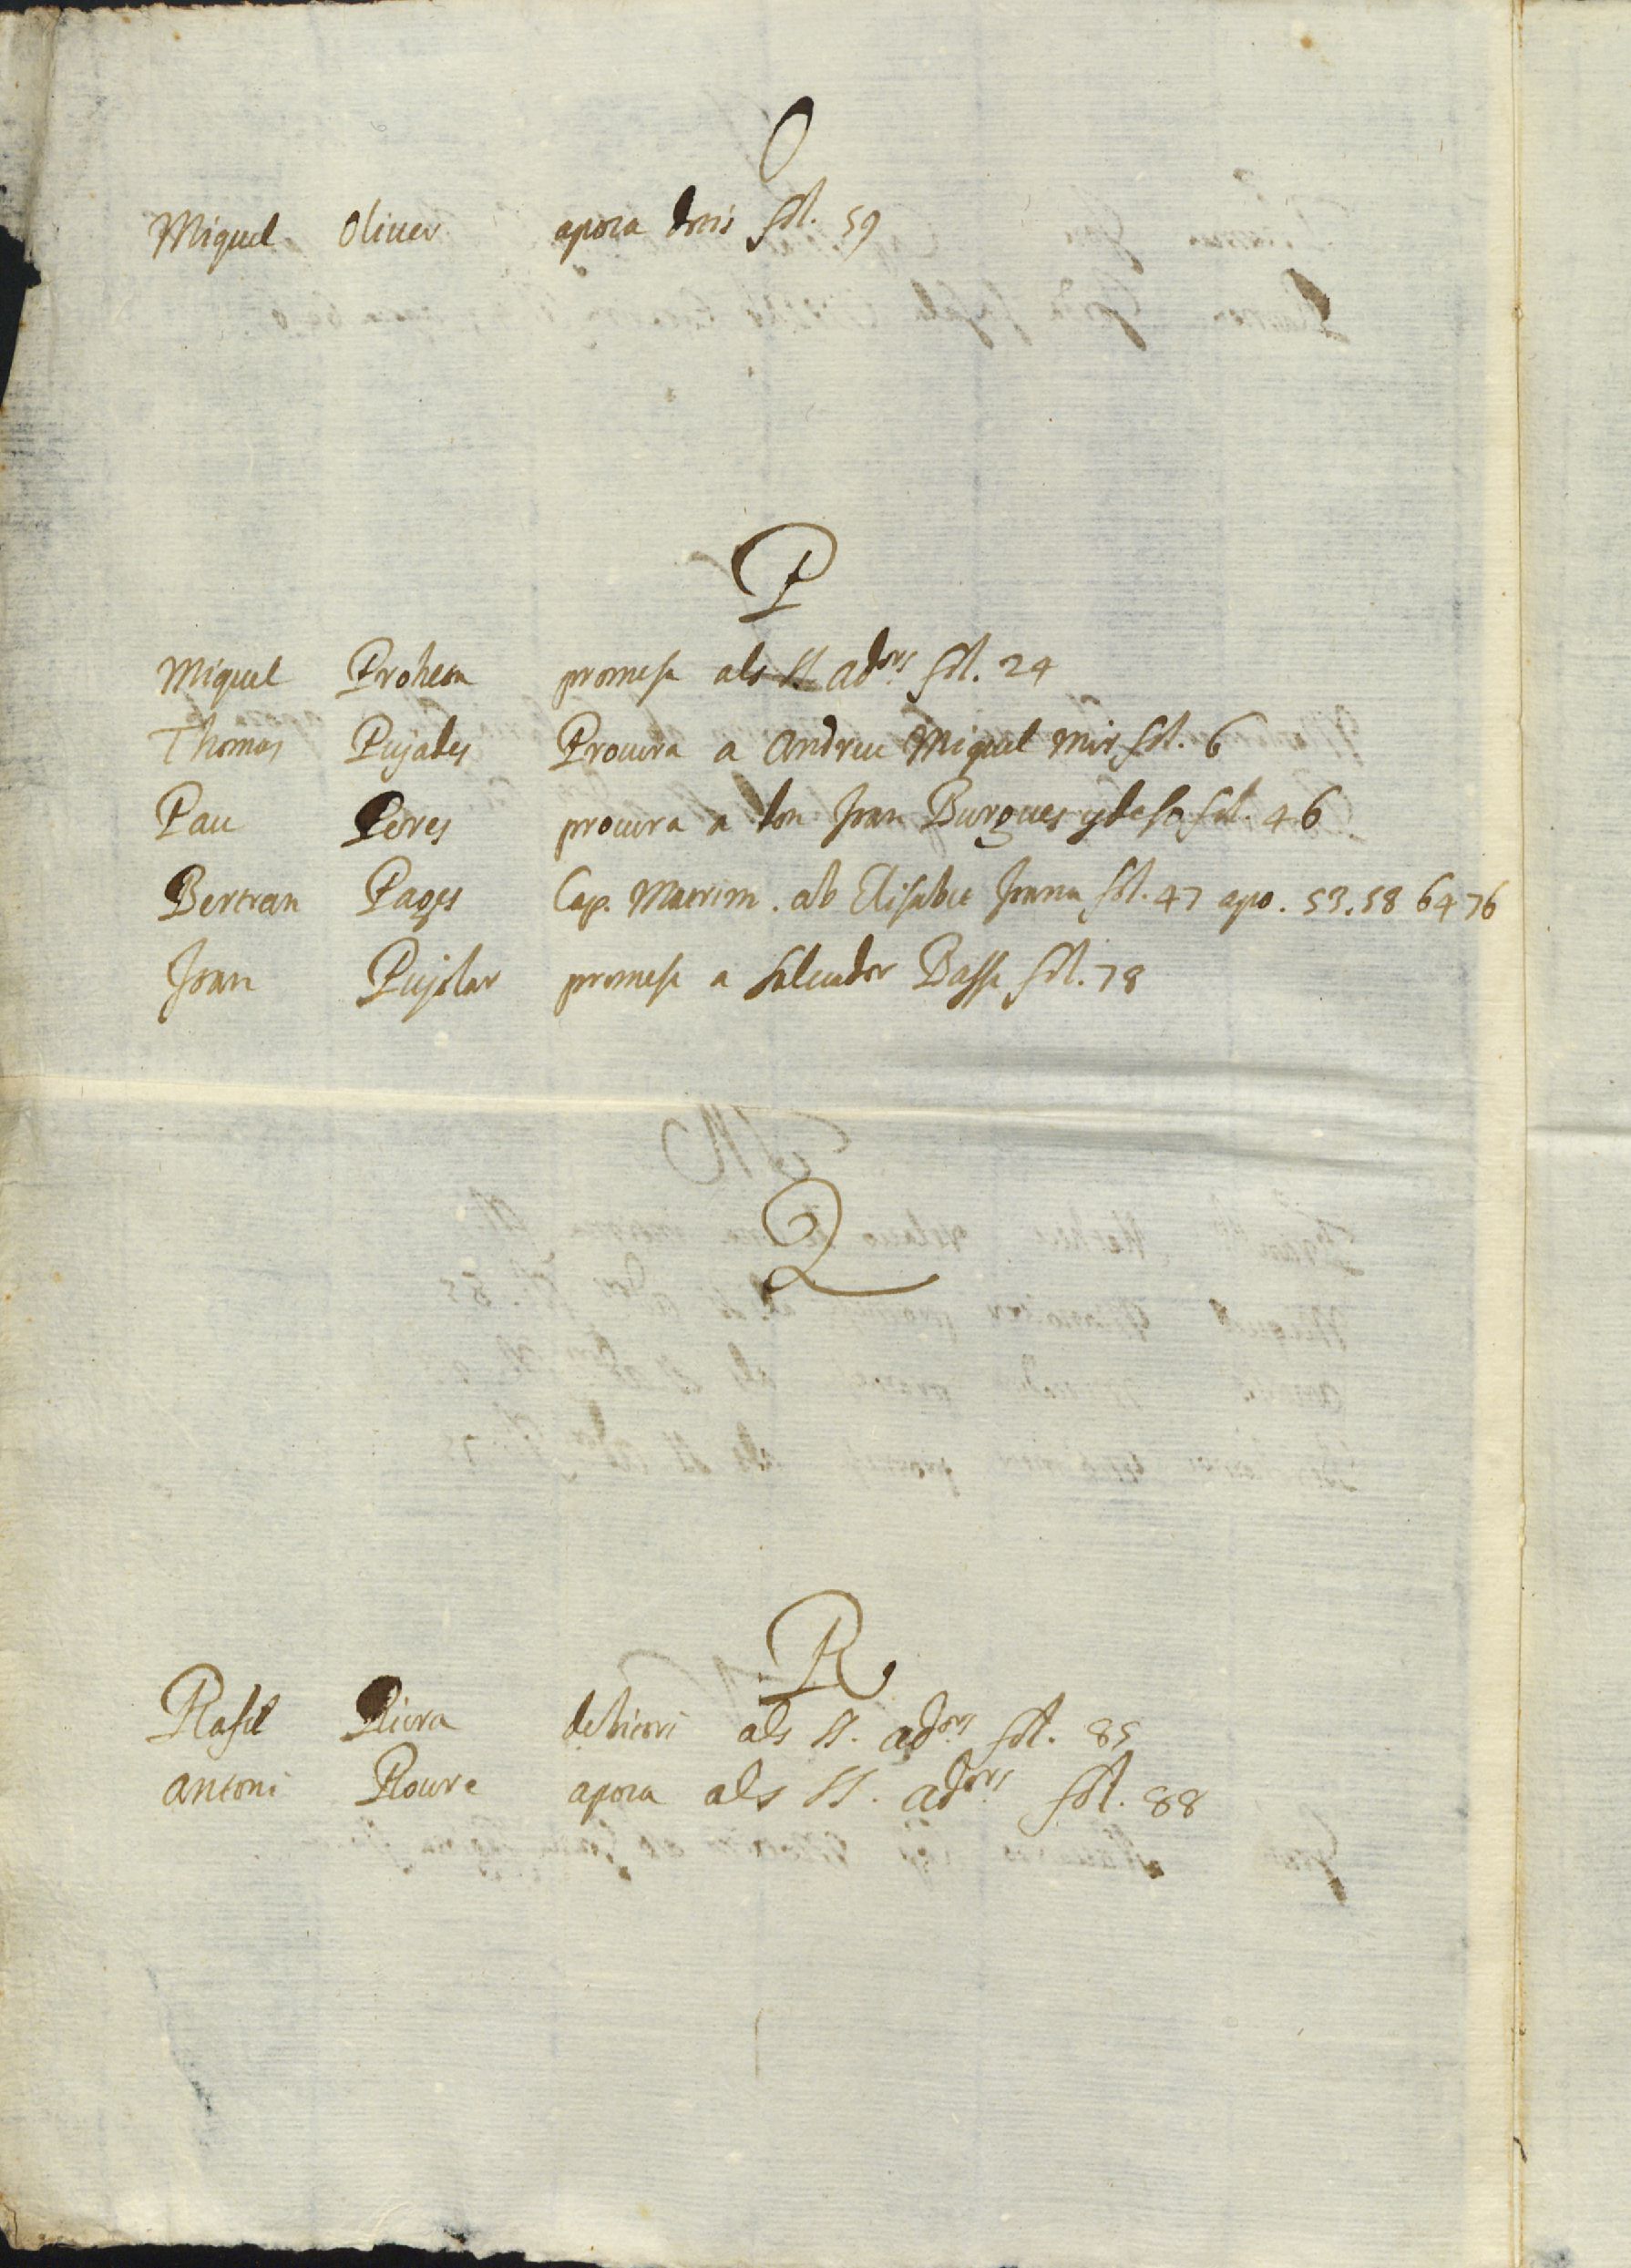 O
Miquel Oliuer apoca dotis fol. 59
P
Miquel Prohem promesa als SS. adors fol. 24
Thomas Pujades Procura a Andreu Miquel Mir fol. 6
Pau Peres procura a don Juan Burgues ydeso fol. 46
Bertran Pages Cap. Matrim. ab Elisabet Juana fol. 47 apo. 53. 58 64 76
Juan Pujolar promesa a Saluador Bassa fol. 78
Q
R
Rafel Riera debitori als SS. adors fol. 85
Antoni Roure apoca als SS. adors fol. 88